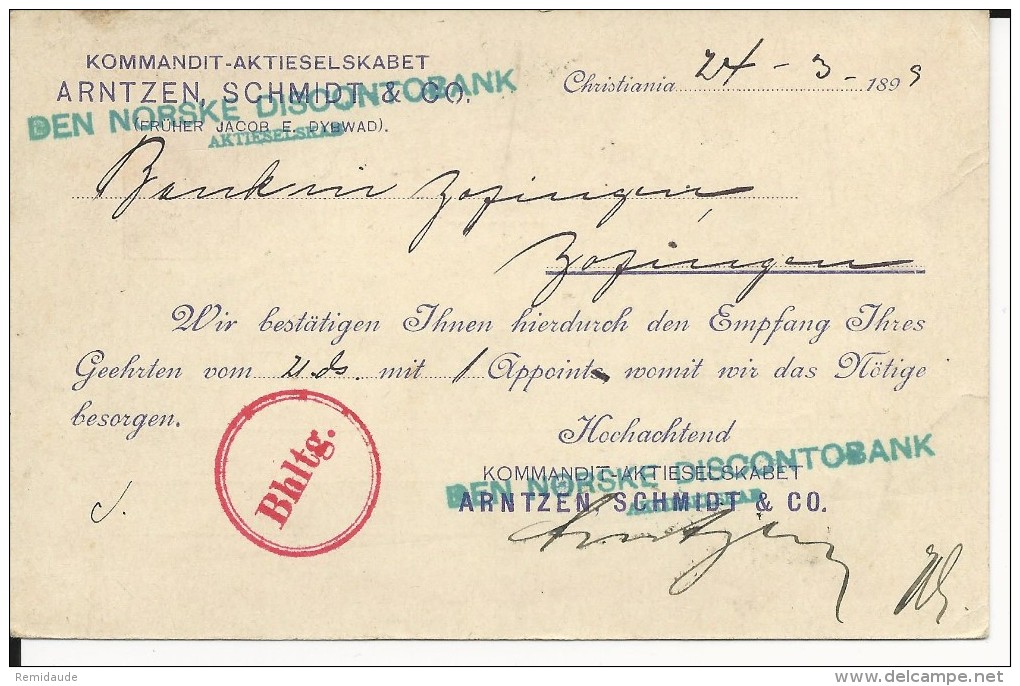 KOMMANDIT-AKTIESELSKABET
ARNTZEN, SCHMIDT & CO.
DEN NORSKE DISCONTOBANK
(FRÜHER JACOB E. DYBWAD).
AKTIESELSKAB
Christiania 24 - 3 - 1899
Bank in Zofingen,
Zofingen
Wir bestätigen Ihnen hierdurch den Empfang Ihres
Geehrten vom 21 ds. mit 1 Appoint womit wir das Nötige
besorgen.
Hochachtend
Bhltg.
KOMMANDIT-AKTIESELSKABET
DEN NORSKE DISCONTOBANK
ARNTZEN, SCHMIDT & CO.
AKTIESELSKAB
Arntzen
Remidaude
delcampe.net